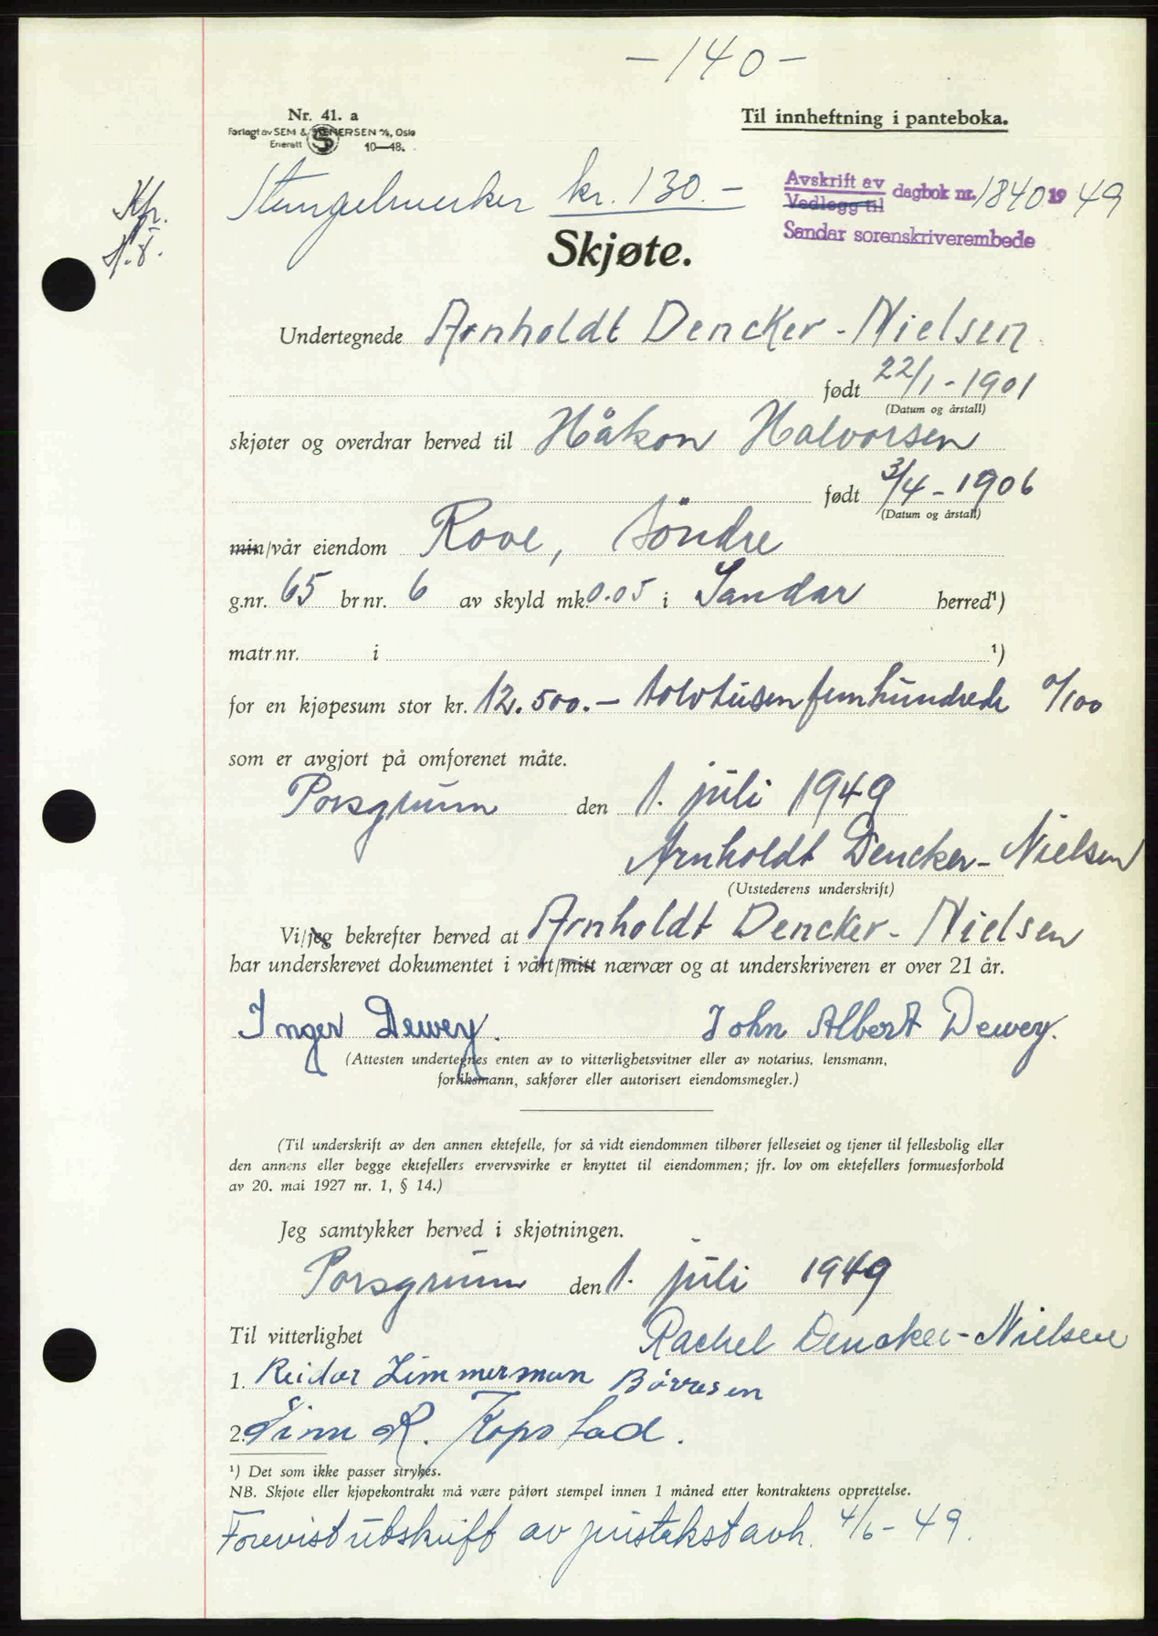 - 140 -
Nr. 41. a
Forlagt av SEM & STENERSEN A/S, Oslo
Enerett 10—48.
Til innheftning i panteboka.
Stempelmerker kr. 130.-
Avskrift av
Vedlegg til
dagbok nr. 1840 1949
Sandar sorenskriverembede
Kfr.
Skjøte.
Undertegnede Arnholdt Dencker-Nielsen
født 22/1-1901
(Datum og årstall)
skjøter og overdrar herved til Håkon Halvorsen
født 3/4-1906
(Datum og årstall)
min/vår eiendom Rove, söndre
g.nr. 65 br.nr. 6 av skyld mk. 0.05 i Sandar herred¹)
matr.nr. i ¹)
for en kjøpesum stor kr. 12.500.- tolvtusenfemhundrede 0/100
som er avgjort på omforenet måte.
Porsgrunn den 1. juli 1949
Arnholdt Dencker-Nielsen
(Utstederens underskrift)
Vi/jeg bekrefter herved at Arnholdt Dencker-Nielsen
har underskrevet dokumentet i vårt/mitt nærvær og at underskriveren er over 21 år.
Inger Dewey. John Albert Dewey.
(Attesten undertegnes enten av to vitterlighetsvitner eller av notarius, lensmann,
forliksmann, sakfører eller autorisert eiendomsmegler.)
(Til underskrift av den annen ektefelle, for så vidt eiendommen tilhører felleseiet og tjener til fellesbolig eller
den annens eller begge ektefellers ervervsvirke er knyttet til eiendommen; jfr. lov om ektefellers formuesforhold
av 20. mai 1927 nr. 1, § 14.)
Jeg samtykker herved i skjøtningen.
Porsgrunn den 1. juli 1949
Til vitterlighet
Rachel Dencker-Nielsen
1. Reidar Zimmerman Börresen
2. Finn R. Kopstad.
¹) Det som ikke passer strykes.
NB. Skjøte eller kjøpekontrakt må være påført stempel innen 1 måned etter kontraktens opprettelse.
Forevist utskrift av pristakstavh. 4/6-49.